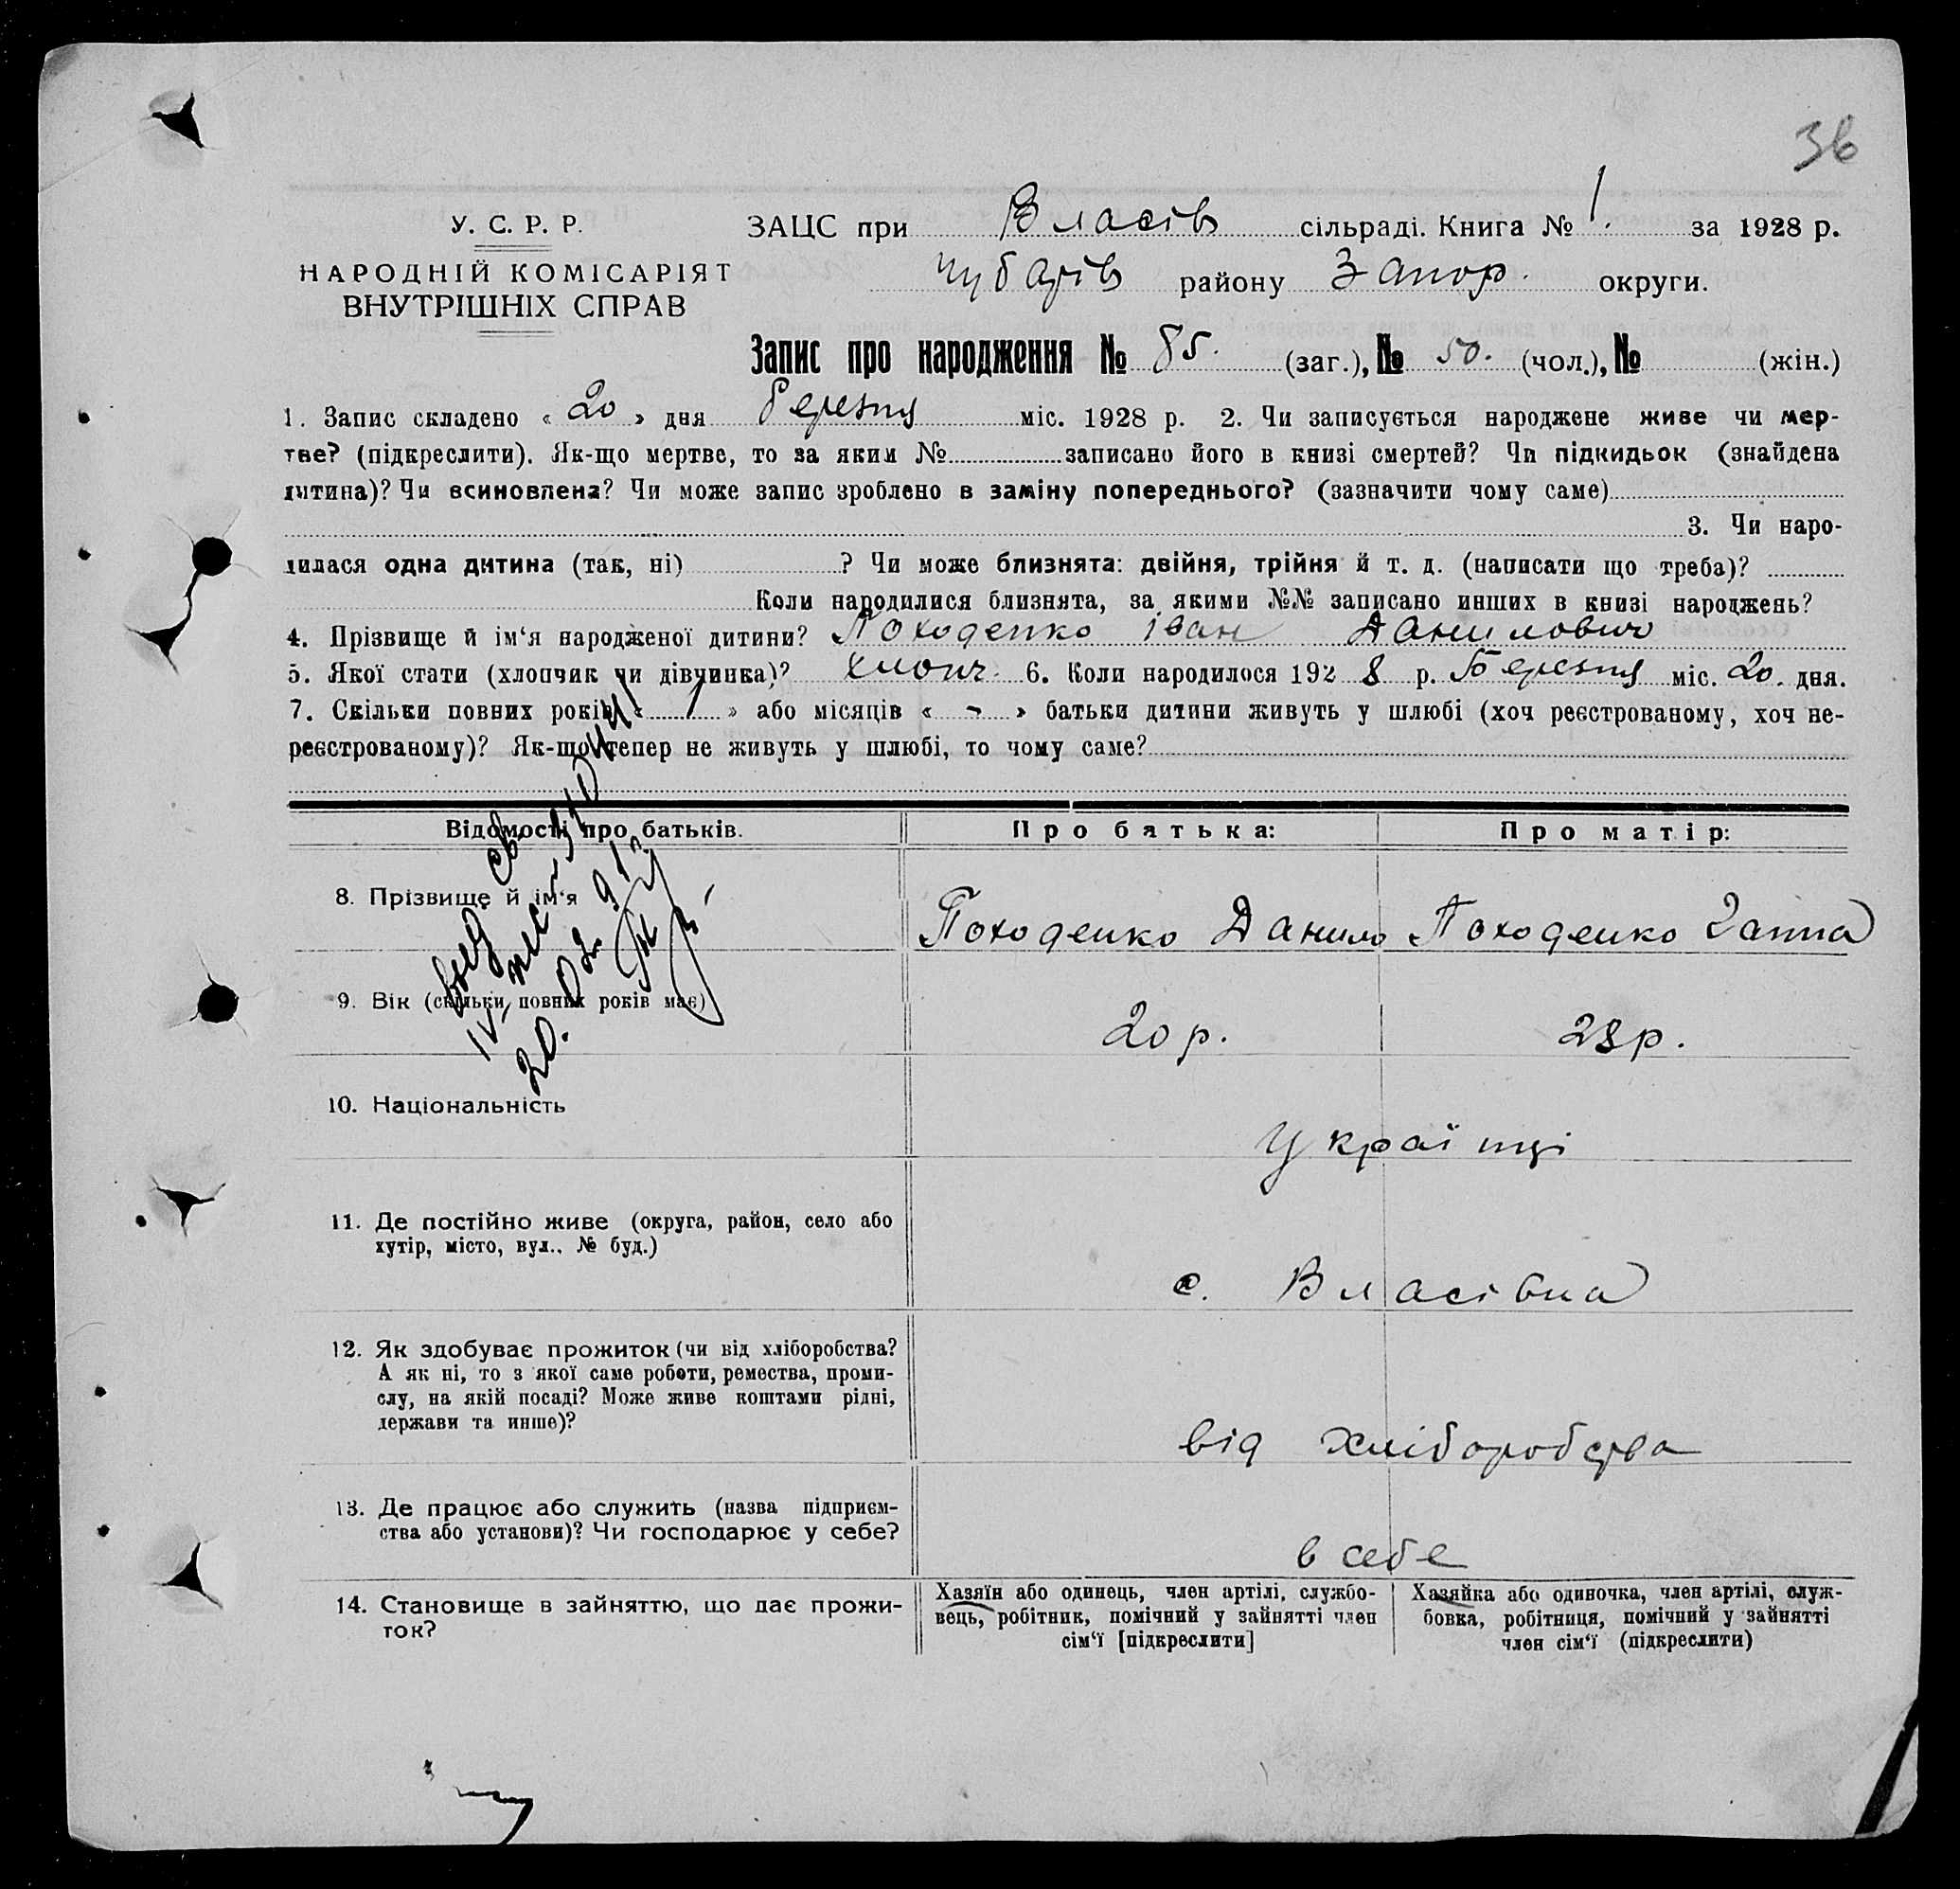 36
У. С. Р. Р.
ЗАЦС при Власів сільраді. Книга № 1. за 1928 р.
НАРОДНІЙ КОМІСАРІЯТ
ВНУТРІШНІХ СПРАВ
Чубарів району Запор. округи.
Запис про народження № 85. (заг.), № 50. (чол.), № (жін.)
1. Запис складено « 20 » дня березня міс. 1928 р. 2. Чи записується народжене живе чи мер-
тве? (підкреслити). Як-що мертве, то за яким № записано його в книзі смертей? Чи підкидьок (знайдена
дитина)? Чи всиновлена? Чи може запис зроблено в заміну попереднього? (зазначити чому саме)
3. Чи наро-
дилася одна дитина (так, ні) ? Чи може близнята: двійня, трійня й т. д. (написати що треба)?
Коли народилися близнята, за якими №№ записано инших в книзі народжень?
4. Прізвище й ім‘я народженої дитини? Походенко Іван Данилович
5. Якої стати (хлопчик чи дівчинка)? хлопч. 6. Коли народилося 1928 р. Березня міс. 20. дня.
7. Скільки повних років « 1 » або місяців « - » батьки дитини живуть у шлюбі (хоч реєстрованому, хоч не-
реєстрованому)? Як-що тепер не живуть у шлюбі, то чому саме?
Відомості про батьків. Про батька: Про матір:
8. Прізвище й ім‘я Походенко Данило Походенко Ганна
9. Вік (скільки повних років має) 20 р. 23 р.
20. 02 91
10. Національність Українці
11. Де постійно живе (округа, район, село або
хутір, місто, вул., № буд.)
с. Власівка
12. Як здобуває прожиток (чи від хліборобства?
А як ні, то з якої саме роботи, ремества, проми-
слу, на якій посаді? Може живе коштами рідні,
держави та инше)?
від хліборобства
13. Де працює або служить (назва підприєм-
ства або установи)? Чи господарює у себе?
в себе
14. Становище в зайняттю, що дає прожи-
ток?
Хазяїн або одинець, член артілі, службо-
вець, робітник, помічний у зайнятті член
сім‘ї [підкреслити]
Хазяйка або одиночка, член артілі, служ-
бовка, робітниця, помічний у зайнятті
член сім‘ї (підкреслити)